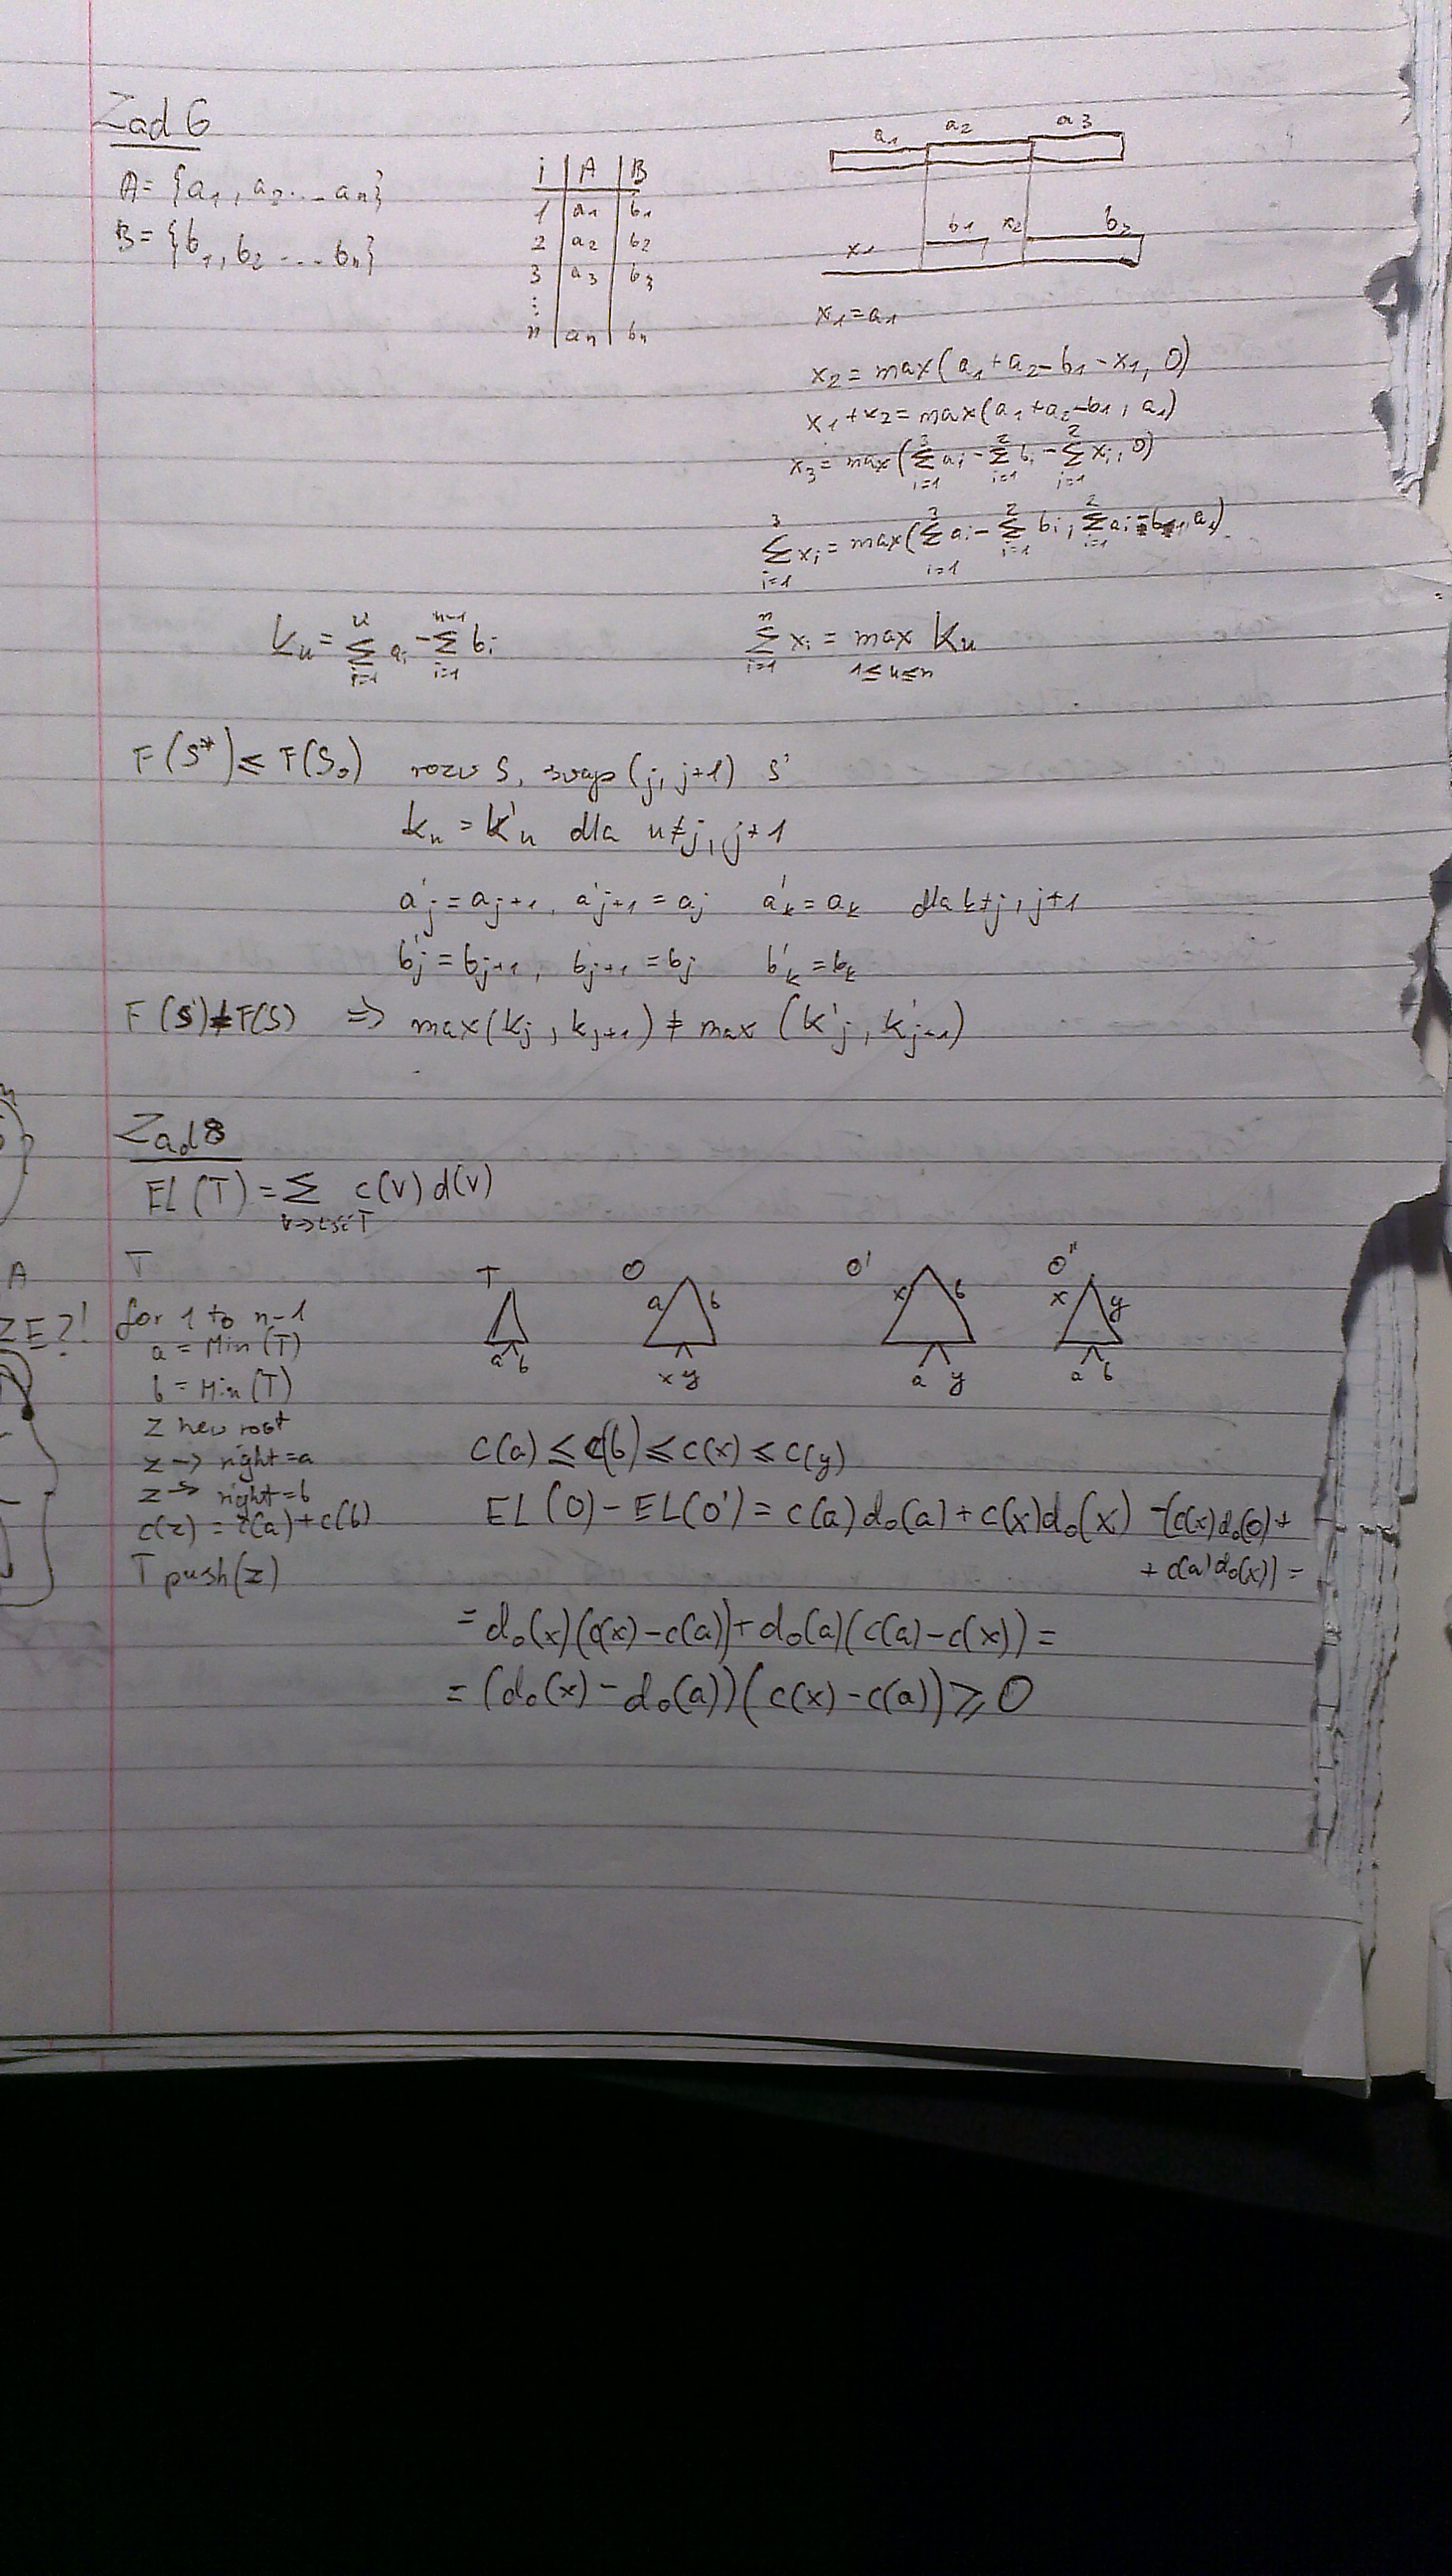 Zad 6
A = {a₁, a₂ ... aₙ}
B = {b₁, b₂ ... bₙ}
i | A | B
1 | a₁ | b₁
2 | a₂ | b₂
3 | a₃ | b₃
⋮
n | aₙ | bₙ
a₁ a₂ a3
x₁ b₁ x₂ b₂
x₁ = a₁
x₂ = max(a₁ + a₂ - b₁ - x₁, 0)
x₁ + x₂ = max(a₁ + a₂ - b₁, a₁)
x₃ = max(∑_{i=1}^{3} aᵢ - ∑_{i=1}^{2} bᵢ - ∑_{i=1}^{2} xᵢ, 0)
∑_{i=1}^{3} xᵢ = max(∑_{i=1}^{3} aᵢ - ∑_{i=1}^{2} bᵢ, ∑_{i=1}^{2} aᵢ - b₁, a₁)
Kᵤ = ∑_{i=1}^{u} aᵢ - ∑_{i=1}^{u-1} bᵢ
∑_{i=1}^{n} xᵢ = max_{1≤u≤n} Kᵤ
F(S*) ≤ F(S₀) rozw S, swap (j, j+1) S'
Kᵤ = K'ᵤ dla u≠j, j+1
a'j = aj+1, a'j+1 = aj a'k = ak dla k≠j, j+1
b'j = bj+1, bj+1 = bj b'k = bk
F(S') ≠ F(S) => max(Kj, Kj+1) ≠ max(K'j, K'j+1)
Zad 8
EL(T) = ∑_{v→liść T} c(v) d(v)
A
ZE?!
T
for 1 to n-1
a = Min(T)
b = Min(T)
z new root
z -> right = a
z -> right = b
c(z) = c(a) + c(b)
T push(z)
T O O' O''
a b x b x y
a b x y a y a b
c(a) ≤ c(b) ≤ c(x) ≤ c(y)
EL(O) - EL(O') = c(a) d₀(a) + c(x) d₀(x) - (c(x) d₀(a) +
+ c(a) d₀(x)) =
= d₀(x)(c(x) - c(a)) + d₀(a)(c(a) - c(x)) =
= (d₀(x) - d₀(a))(c(x) - c(a)) ≥ 0